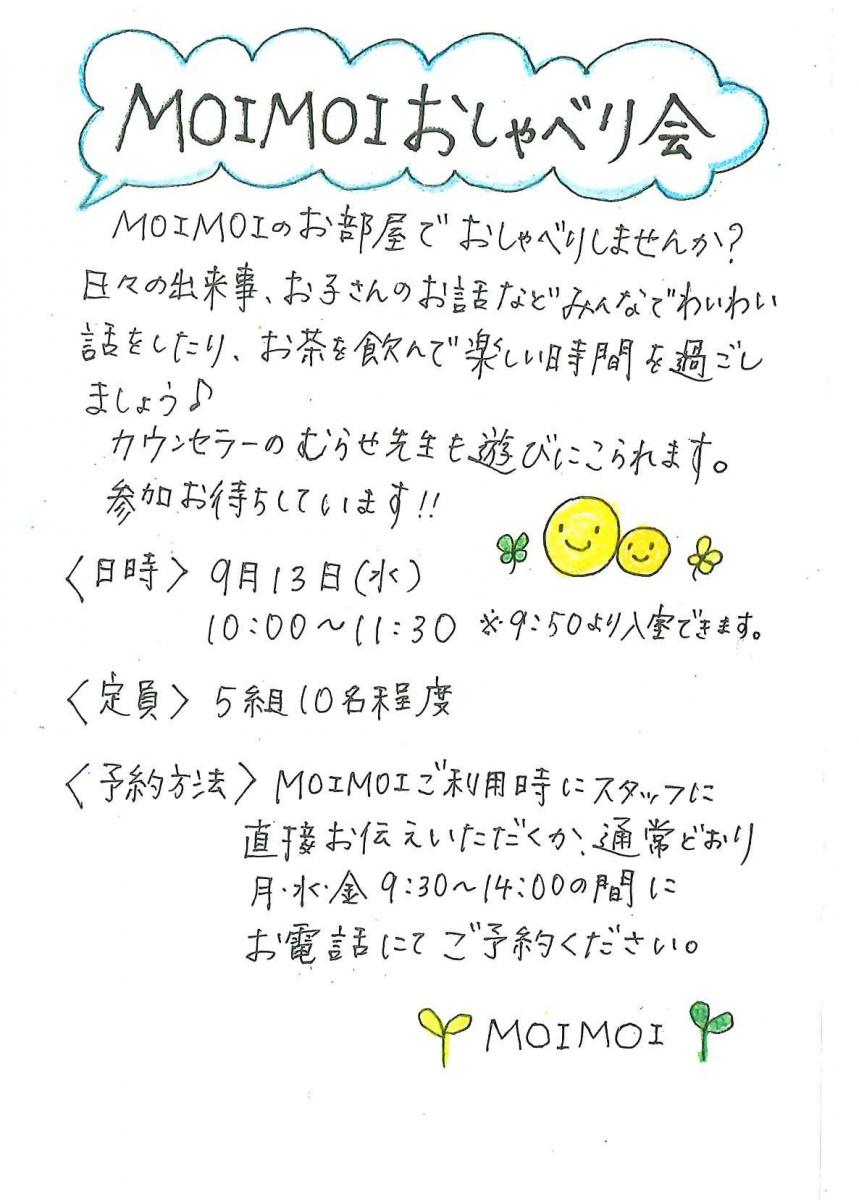 MOIMOIおしゃべり会
MOIMOIのお部屋でおしゃべりしませんか?
日々の出来事、お子さんのお話などみんなでわいわい
話をしたり、お茶を飲んで楽しい時間を過ごし
ましょう♪
カウンセラーのむらせ先生も遊びにこられます。
参加お待ちしています!!
〈日時〉 9月13日(水)
10:00〜11:30 ※9:50より入室できます。
〈定員〉 5組10名程度
〈予約方法〉 MOIMOIご利用時にスタッフに
直接お伝えいただくか、通常どおり
月・水・金 9:30〜14:00の間に
お電話にてご予約ください。
MOIMOI